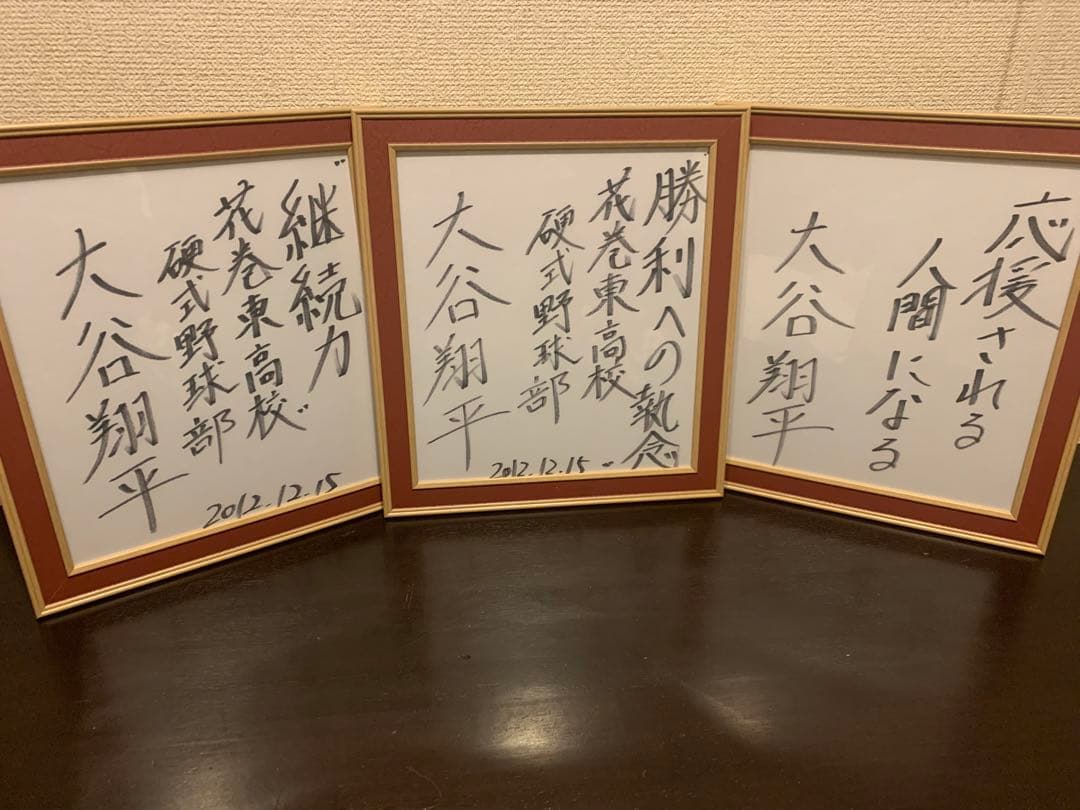 "継続力
花巻東高校
硬式野球部
大谷翔平
2012.12.15
"勝利への執念"
花巻東高校
硬式野球部
大谷翔平
2012.12.15
応援される
人間になる
大谷翔平